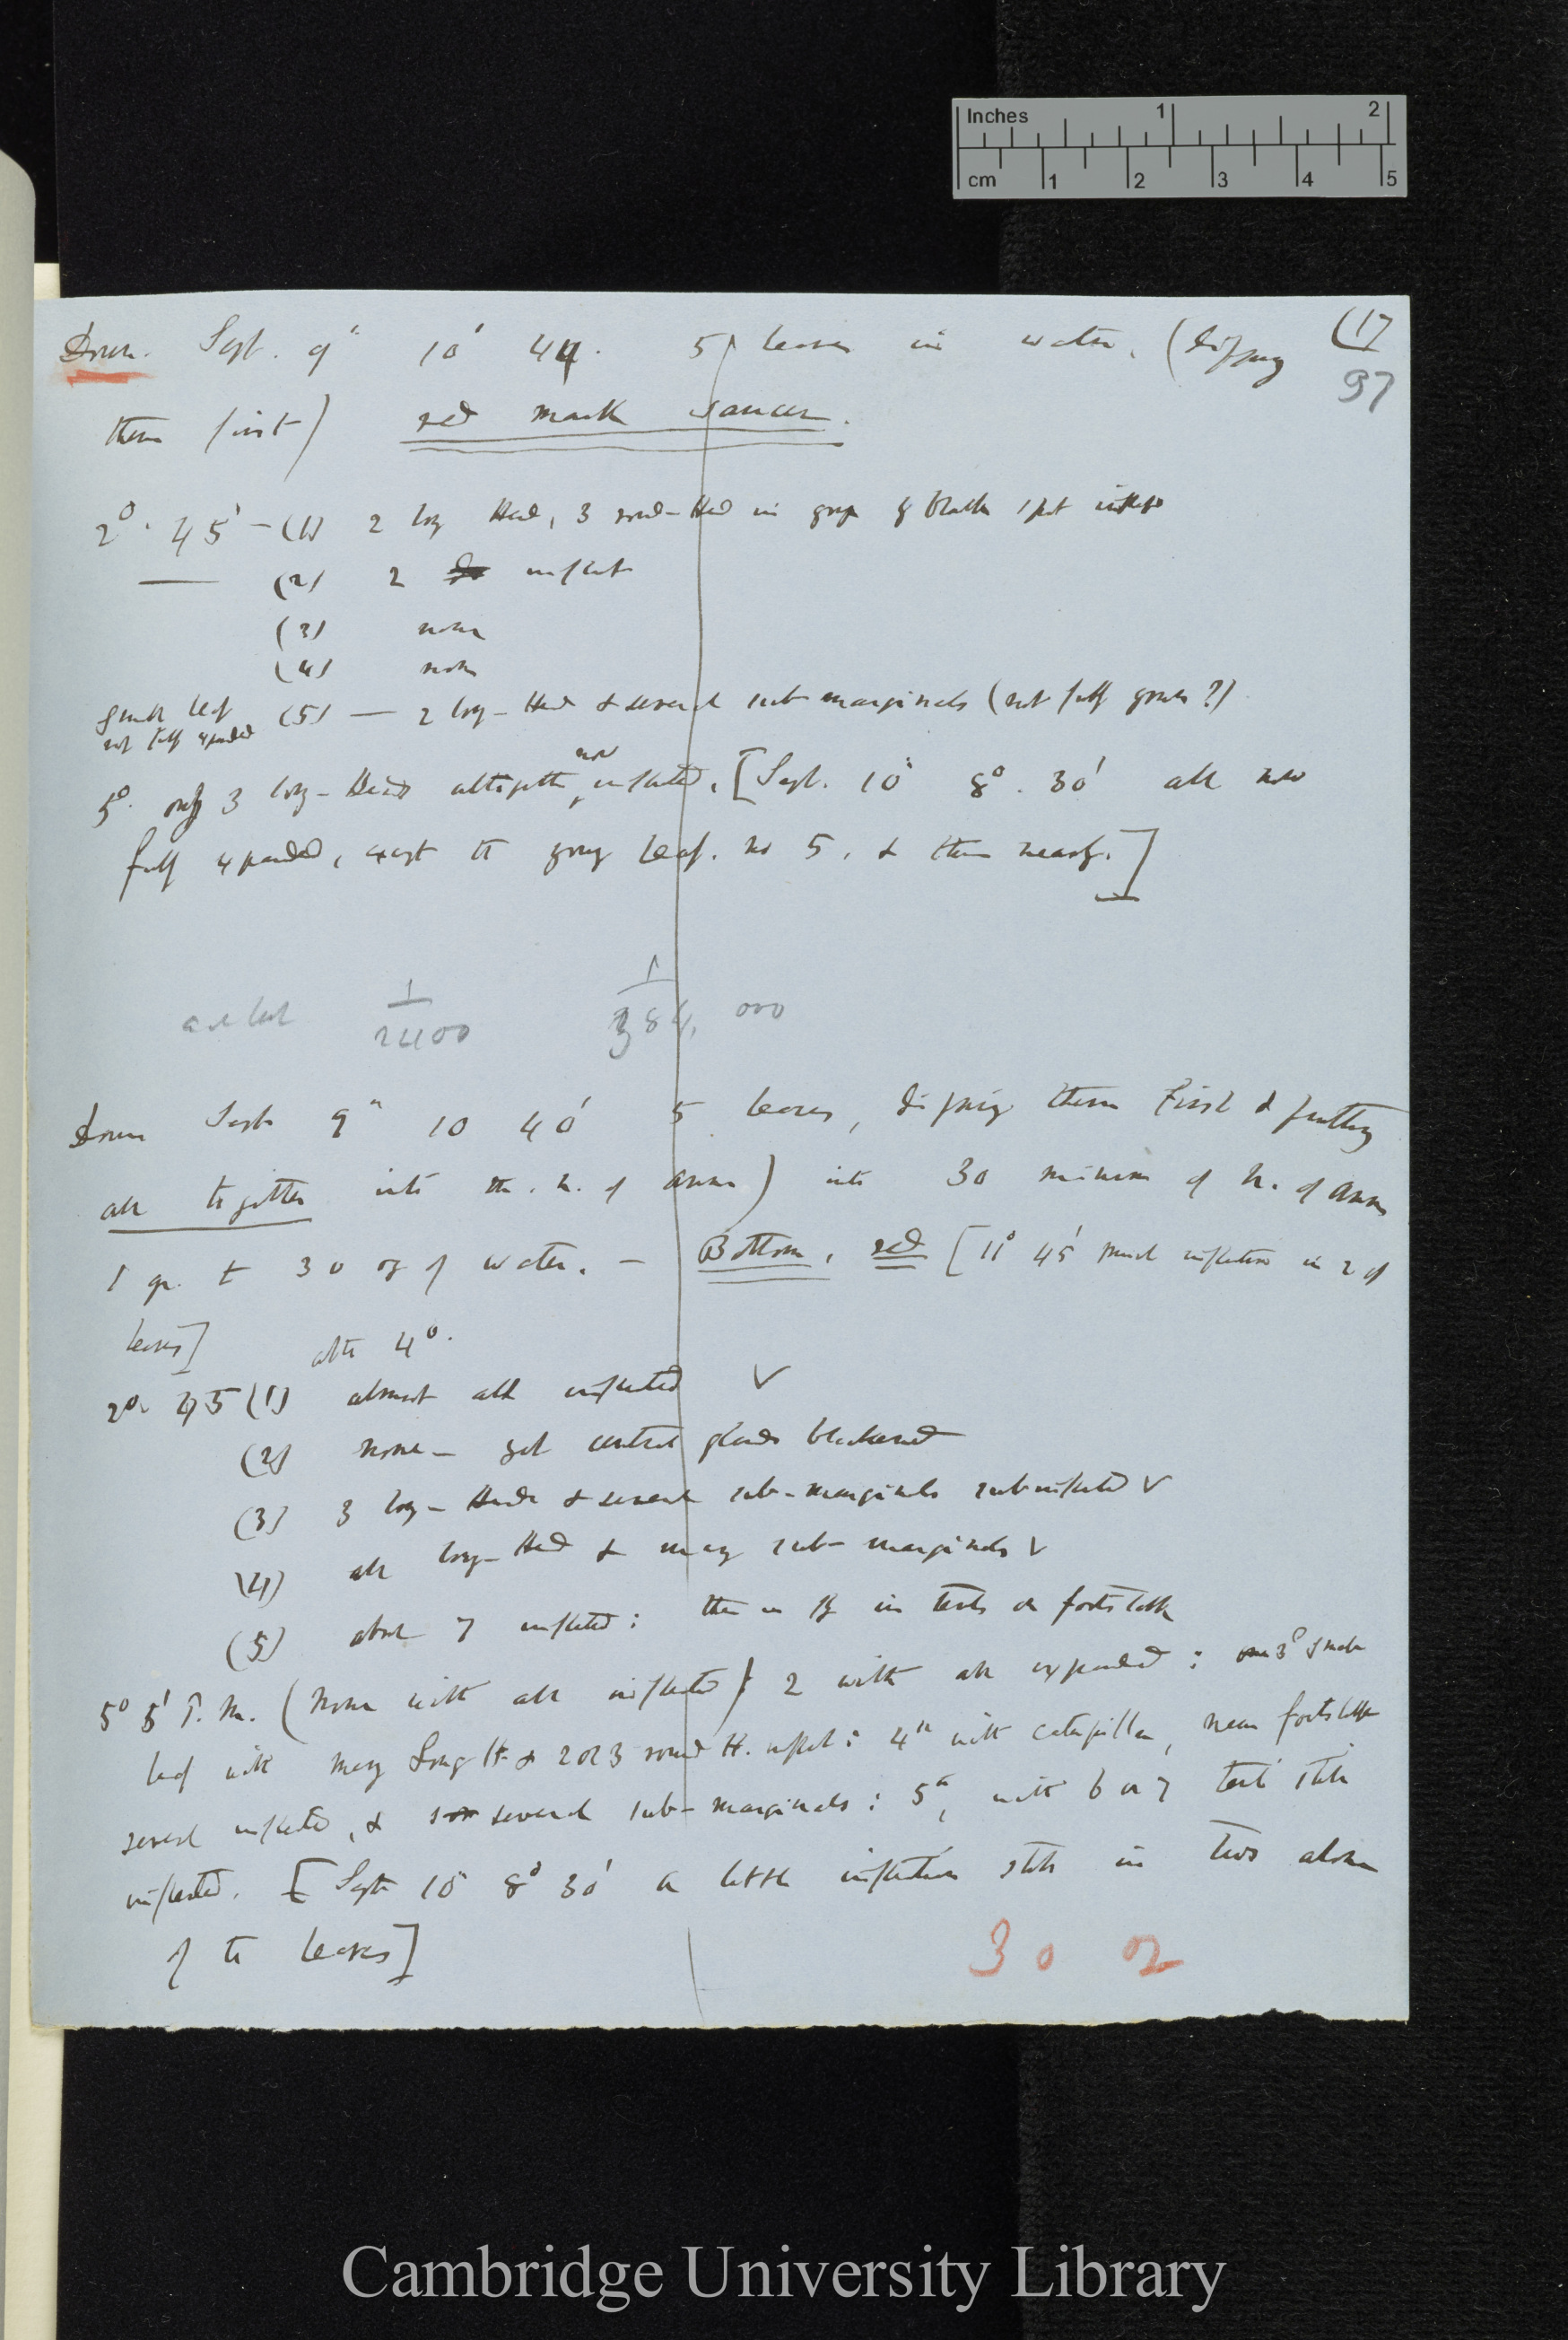 Inches 1 2
cm 1 2 3 4 5
Down. Sept. 9th 10° 44. 5 leaves in water. (dipping (17
97
them first) red mark saucer.
2°. 45' – (1) 2 long Head, 3 round-Head in group of black
(2) 2 do inflect
(3) none
(4) none
small leaf
not fully expanded
(5) — 2 long-Head & several sub marginals (not fully grown?)
5°. only 3 long-Heads altogether now inflected. [Sept. 10th 8°. 30' all now
fully expanded, except the young leaf. no 5, & then nearly.]
1/2400 1/384,000
Down Sept 9th 10 40' 5 leaves, dipping them first & putting
all together into the . n. of amm) into 30 minims of N. of amm
1 gr. to 30 oz of water. – Bottom, red [11° 45' much inflection in 2 of
leaves] after 4°.
2°. 45 (1) almost all inflected ✓
(2) none – yet central glands blackened
(3) 3 long-Heads & several sub-marginals subinflected ✓
(4) all long-Head & many sub-marginals ✓
(5) about 7 inflected: there is fly in tents on footstalk
5° 5' P.M. (None with all inflected) 2 with all expanded: 3d small
leaf with many Long H. & 2 or 3 round H. inflect: 4th with caterpillar, near footstalk
several inflected, & several sub-marginals: 5th, with 6 or 7 tent. still
inflected. [Sept 10th 8° 30' a little inflection still in two alone
of the leaves]
30 oz
Cambridge University Library